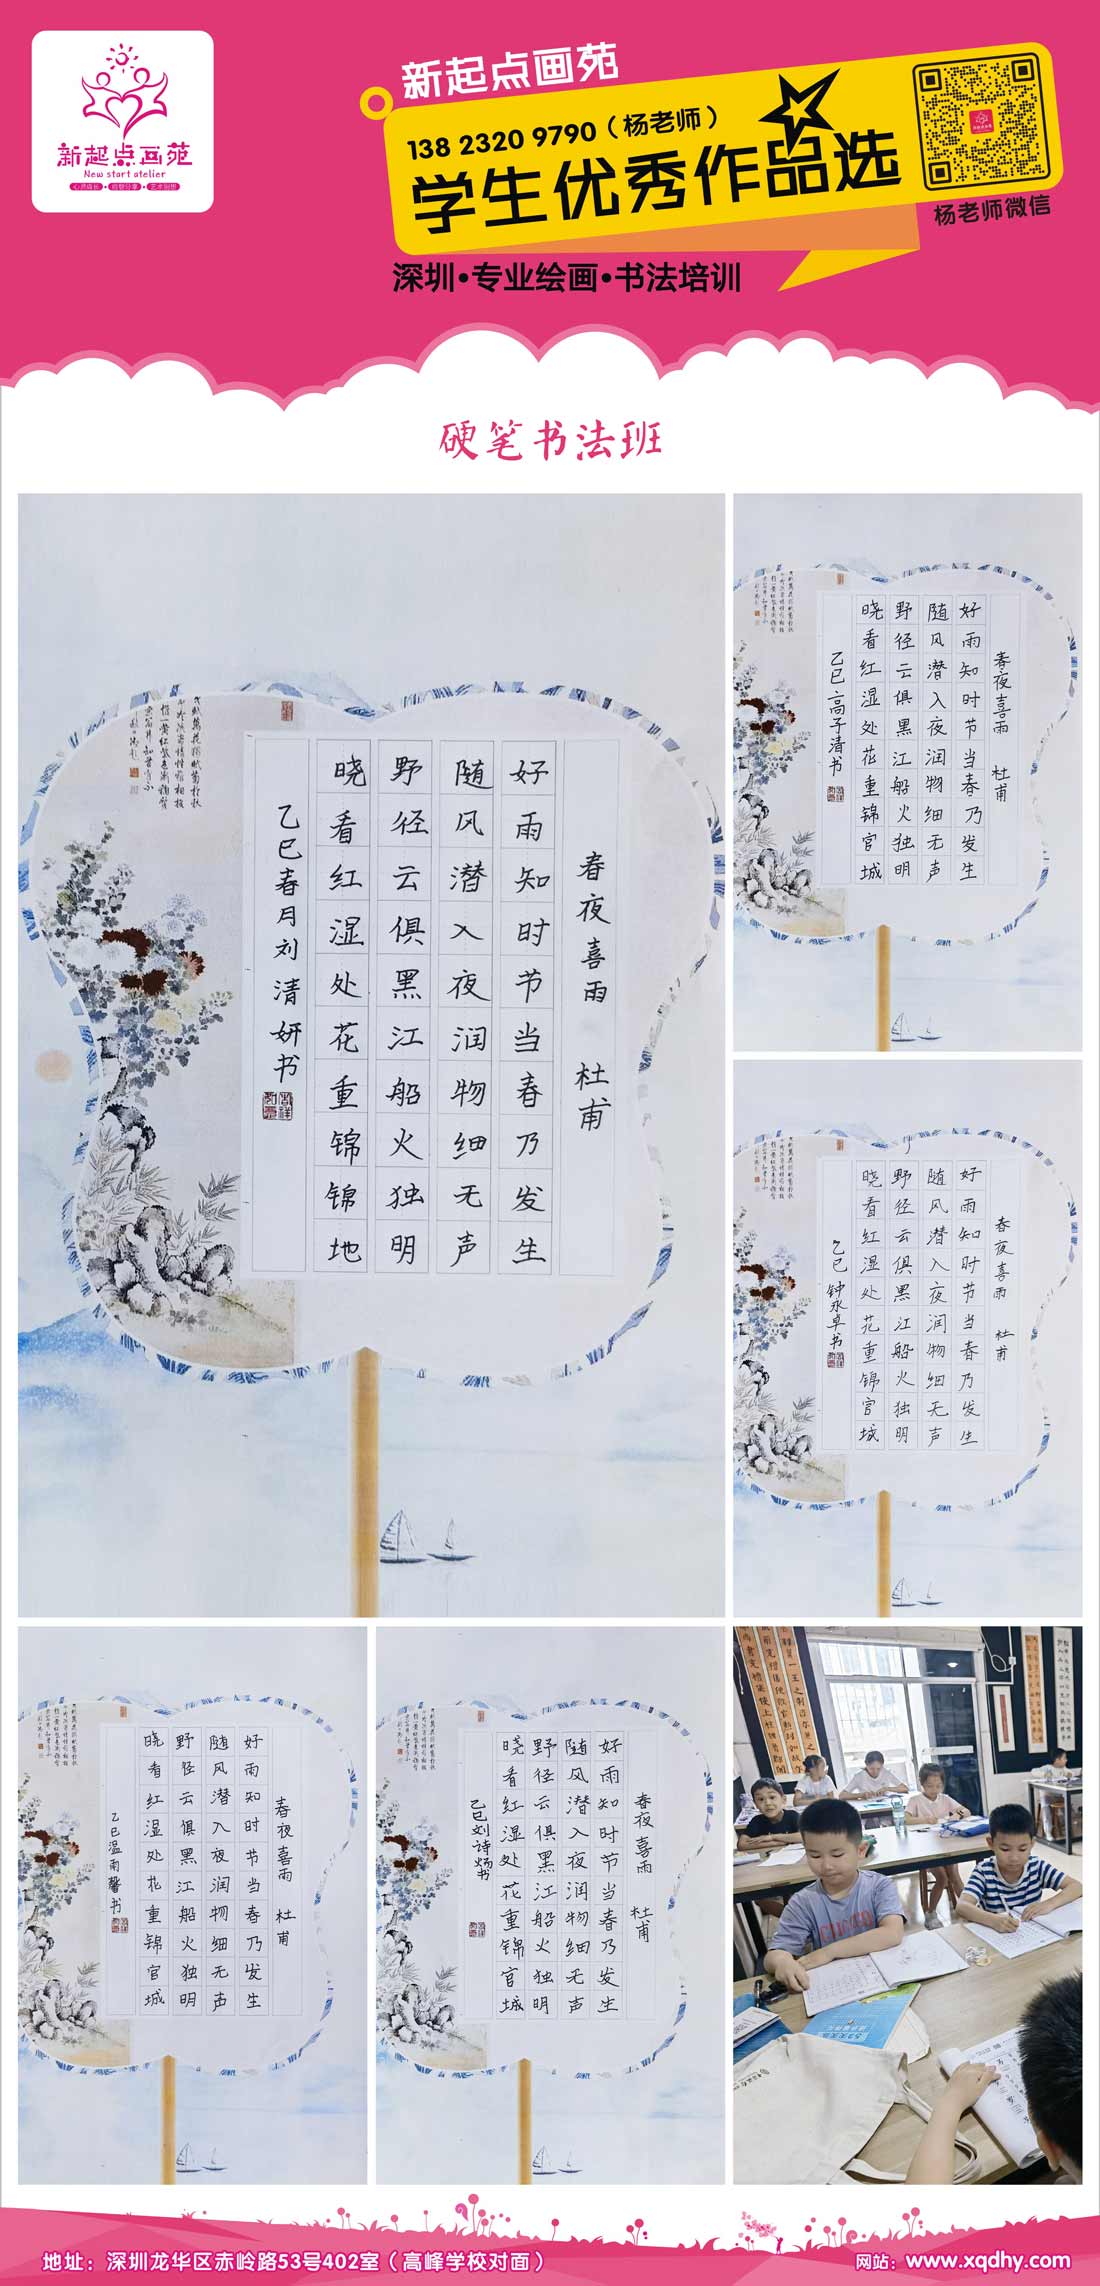 新起点画苑
New start atelier
心灵成长 • 启智分享 • 艺术创想
新起点画苑
138 2320 9790（杨老师）
学生优秀作品选
杨老师微信
深圳•专业绘画•书法培训
硬笔书法班
春夜喜雨 杜甫
好雨知时节当春乃发生
随风潜入夜润物细无声
野径云俱黑江船火独明
晓看红湿处花重锦锦地
乙巳春月刘清妍书
春夜喜雨 杜甫
好雨知时节当春乃发生
随风潜入夜润物细无声
野径云俱黑江船火独明
晓看红湿处花重锦官城
乙巳高子清书
春夜喜雨 杜甫
好雨知时节当春乃发生
随风潜入夜润物细无声
野径云俱黑江船火独明
晓看红湿处花重锦官城
乙巳钟永卓书
春夜喜雨 杜甫
好雨知时节当春乃发生
随风潜入夜润物细无声
野径云俱黑江船火独明
晓看红湿处花重锦官城
乙巳温雨馨书
春夜喜雨 杜甫
好雨知时节当春乃发生
随风潜入夜润物细无声
野径云俱黑江船火独明
晓看红湿处花重锦官城
乙巳刘诗炀书
地址：深圳龙华区赤岭路53号402室（高峰学校对面）
网站：www.xqdhy.com